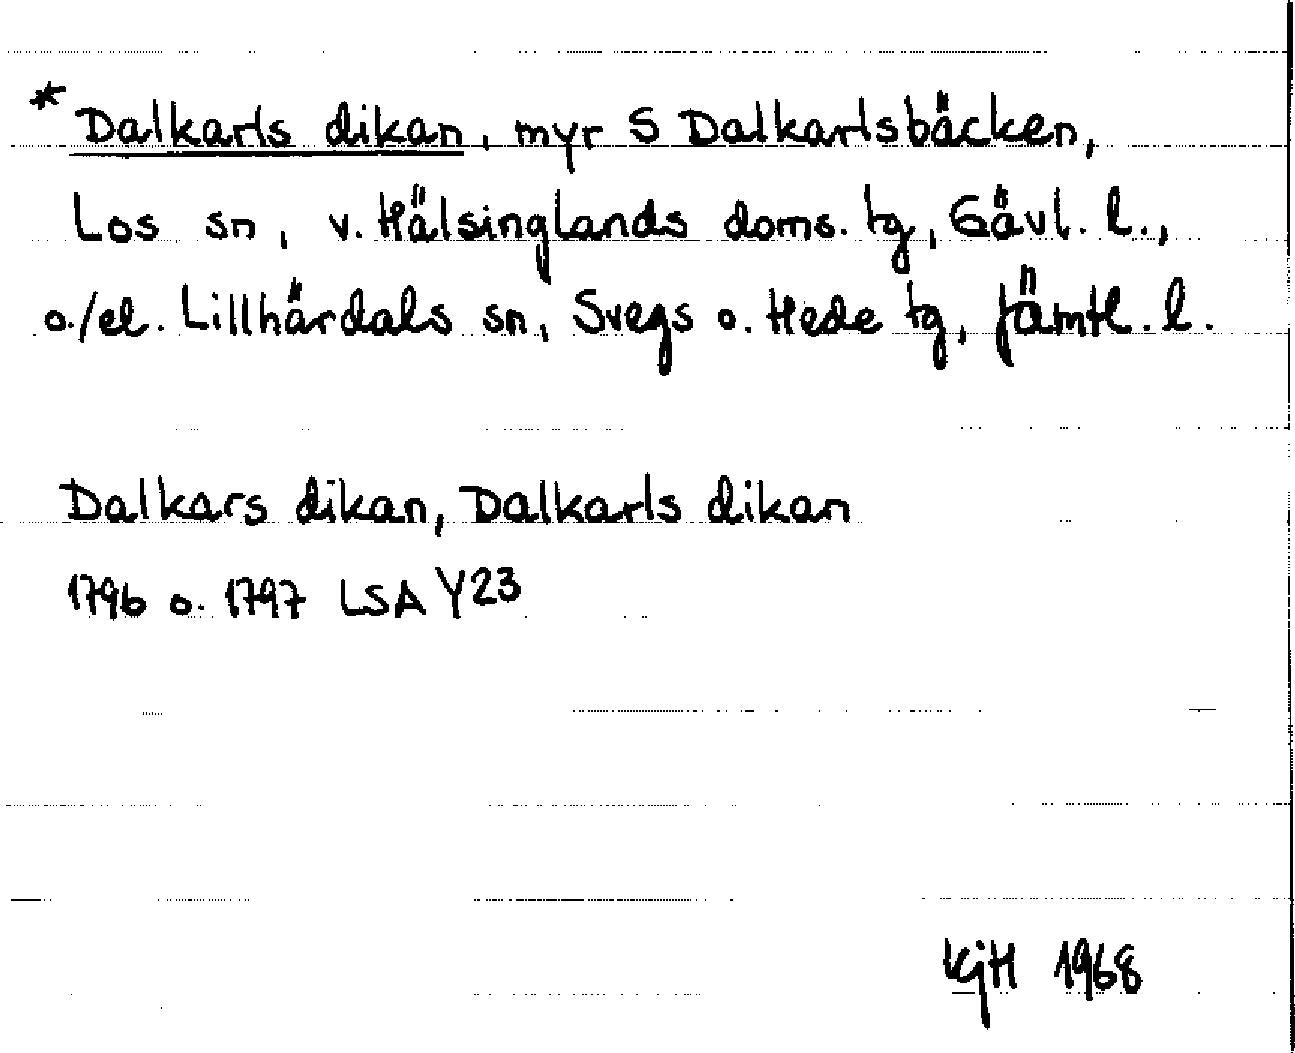 * Dalkarls dikan, myr S Dalkarlsbäcken,
Los sn, v. Hälsinglands doms. tg, Gävl. l.,
o./el. Lillhärdals sn, Svegs o. Hede tg, Jämtl. l.
Dalkars dikan, Dalkarls dikan
1796 o. 1797 LSA Y23
KGH 1968